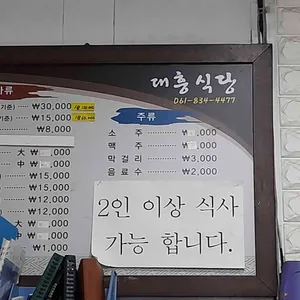 대흥식당
061-834-4477
사류
기준) ₩30,000
기준) ₩15,000
₩8,000
大
中
₩15,000
₩15,000
₩12,000
₩12,000
大
中
₩1,000
주류
소 주
맥 주
막걸리 ₩3,000
음료수 ₩2,000
2인 이상 식사
가능 합니다.